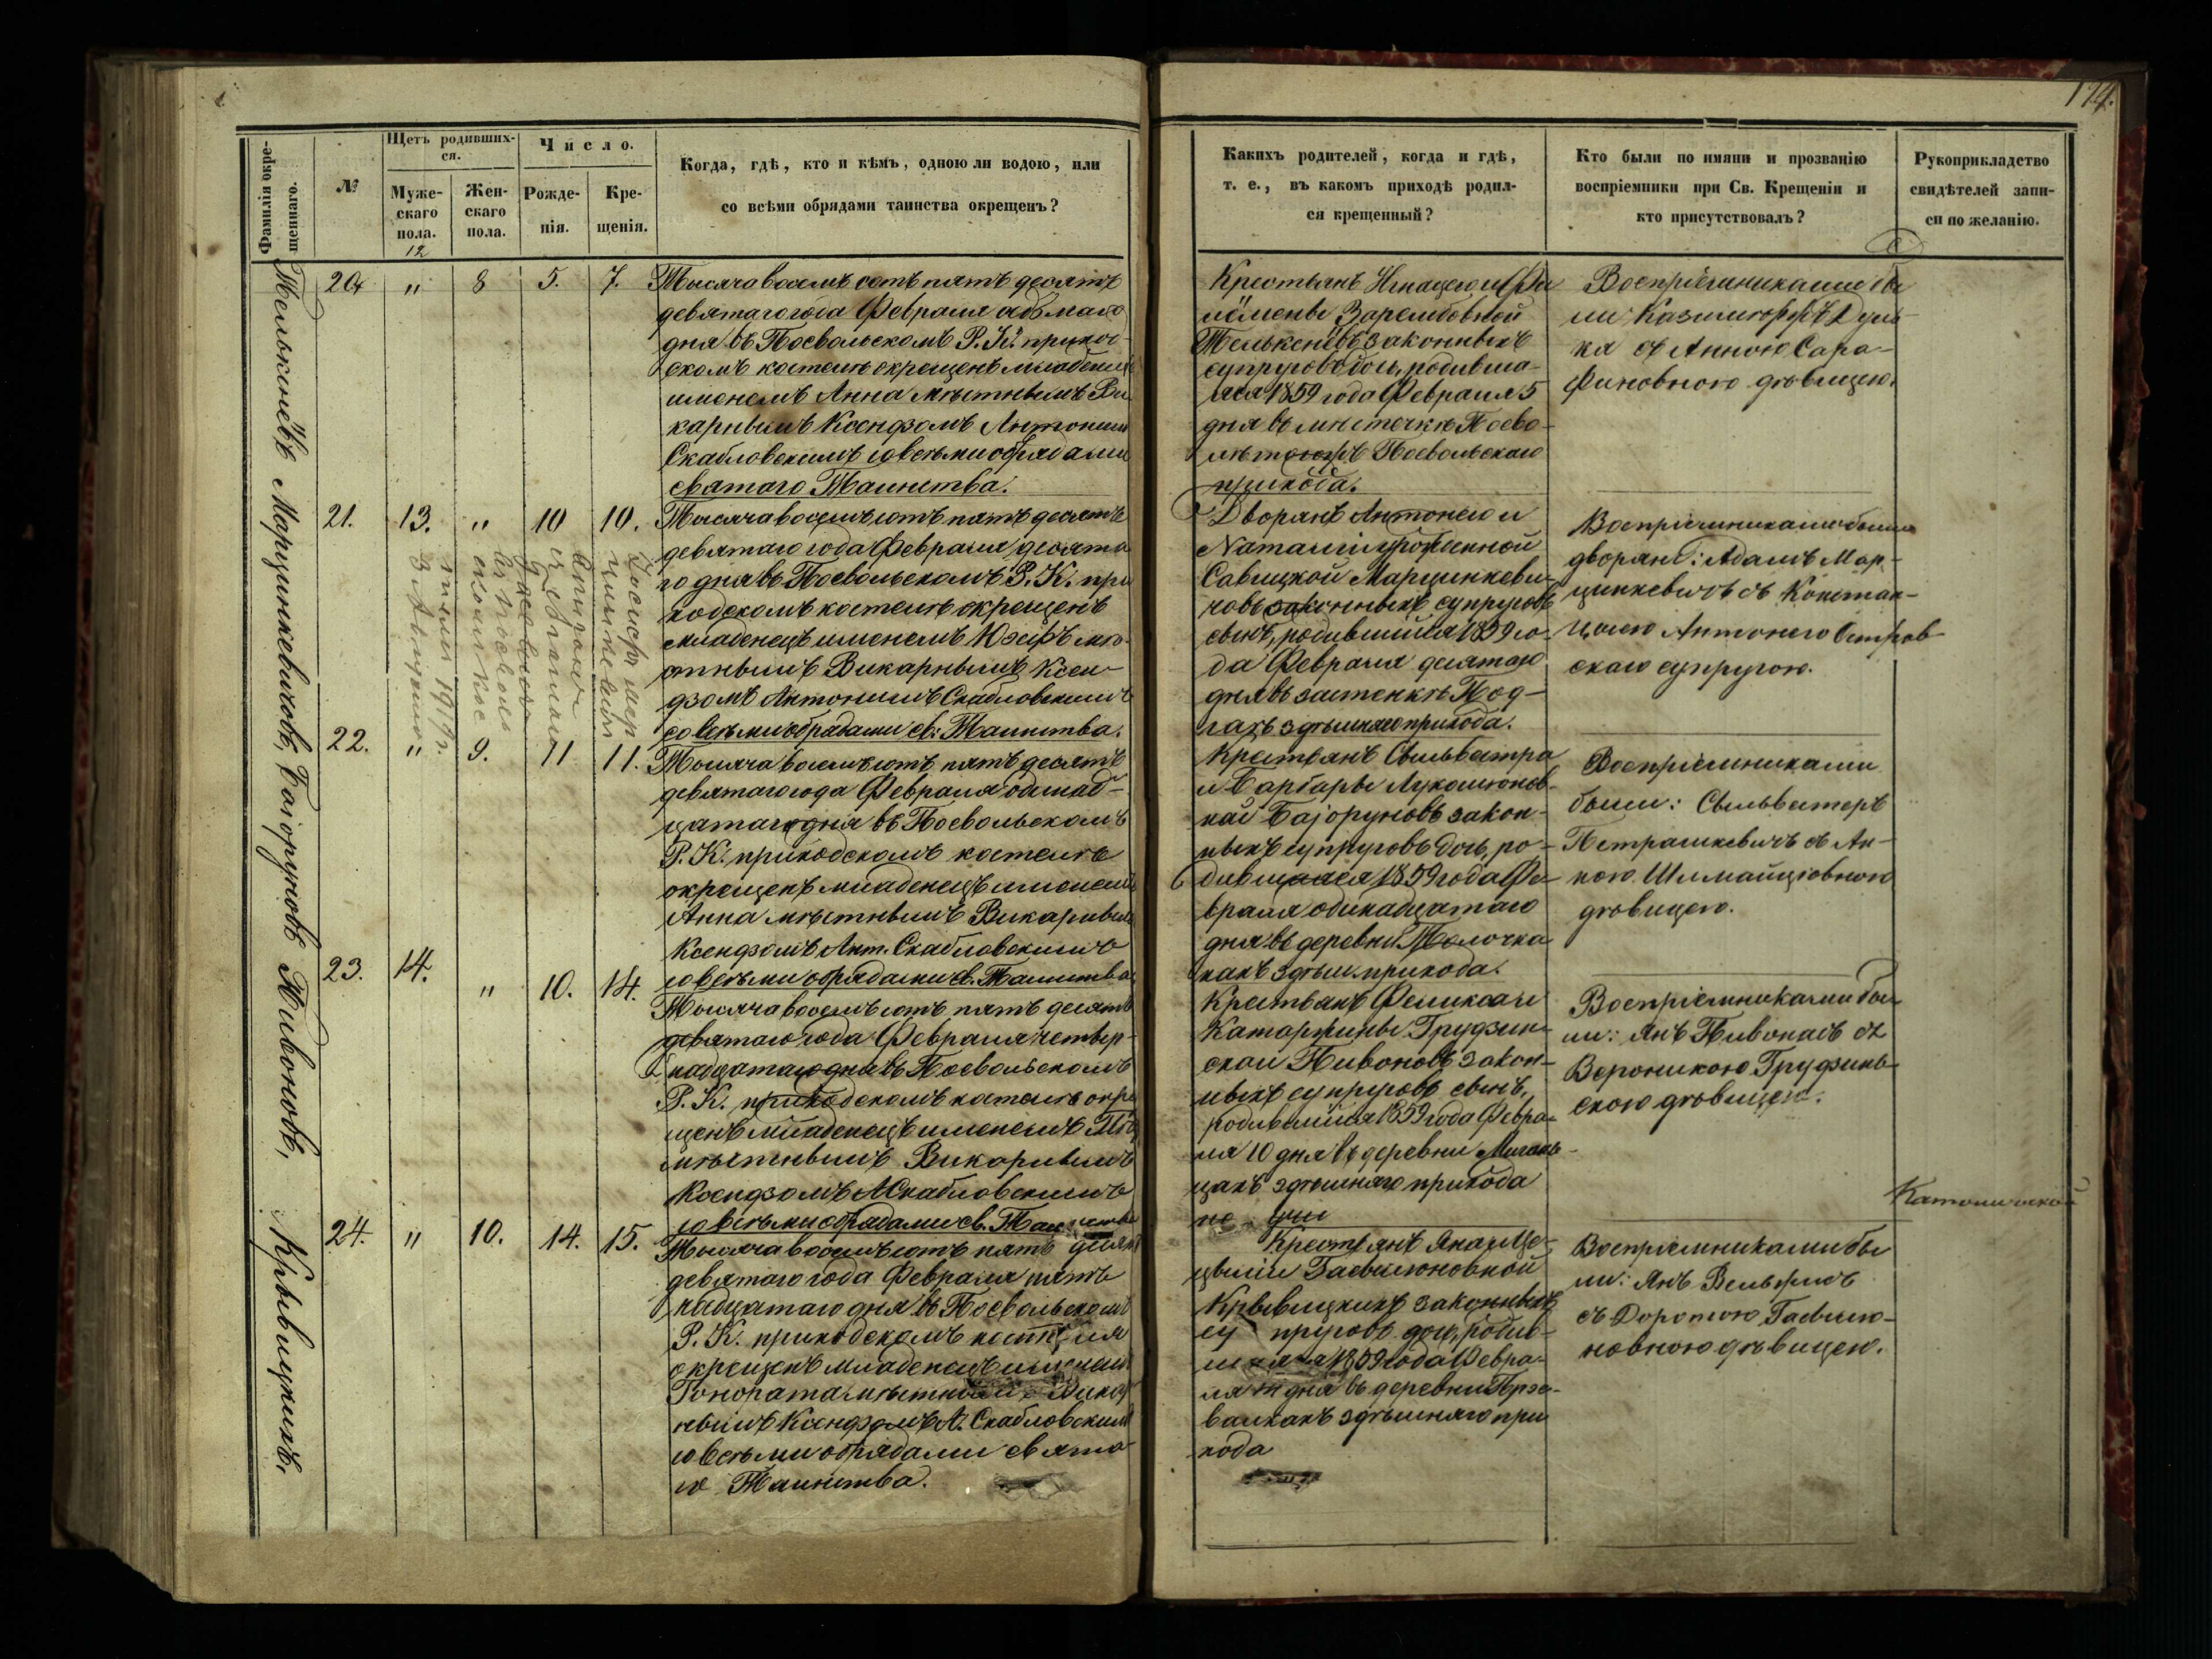 174.
Фамилія окре-
щеннаго.
№
Щетъ родивших-
ся.
Муже-
скаго
пола.
12
Жен-
скаго
пола.
Число.
Рожде-
нія.
Кре-
щенія.
Когда, гдѣ, кто и кѣмъ, одною ли водою, или
со всѣми обрядами таинства окрещенъ?
Какихъ родителей, когда и гдѣ,
т. е., въ какомъ приходѣ родил-
ся крещенный?
Кто были по имяни и прозванію
воспріемники при Св. Крещеніи и
кто присутствовалъ?
Рукоприкладство
свидѣтелей запи-
си по желанію.
20 " 8 5. 7.
Тысяча восемъ сотъ пять десятъ
девятаго года Февраля седьмаго
дня въ Посвольскомъ Р. К. приход-
скомъ костелѣ окрещенъ младенецъ
именемъ Анна мѣстнымъ Ви
карнымъ Ксендзомъ Антонимъ
Скабловскимъ со всѣми обрядами
святаго Таинства.
Крестьянъ Игнацего и Фи
ломены Зарембовной
законныхъ
супруговъ дочь, родивша-
яся 1859 года Февраля 5
дня въ мѣстечкѣ Посво-
Посвольскаго
прихода.
Воспріемниками бы
ли: Казимиръ
съ Анною Сара-
финовною дѣвицею.
21. 13. " 10 10.
Марцинкевичовъ,
Тысяча восемъ сотъ пять десятъ
девятаго года Февраля десята
го дня въ Посвольскомъ Р. К. при
ходскомъ костелѣ окрещенъ
младенецъ именемъ Юзефъ мѣ-
стнымъ Викарнымъ Ксен-
дзомъ Антонимъ Скабловскимъ
со всѣми обрядами св. Таинства.
Дворянъ Антонего и
Наталіи урожденной
Савицкой Марцинкеви-
човъ законныхъ супруговъ
сынъ, родившійся 1859 го-
да Февраля десятаго
дня въ застенкѣ Под-
здѣшняго прихода.
Воспріемниками были
дворяне: Адамъ Мар-
цинкевичъ съ Констан-
цыею Антонего Остров-
скаго супругою.
22. " 9. 11 11.
Баіоруновъ
Тысяча восемъ сотъ пять десятъ
девятаго года Февраля одинад-
цатаго дня въ Посвольскомъ
Р. К. приходскомъ костелѣ
окрещенъ младенецъ именемъ
Анна мѣстнымъ Викарнымъ
Ксендзомъ Ант. Скабловскимъ
со всѣми обрядами св. Таинства
Крестьянъ Сыльвестра
и Барбары
Баіоруновъ закон-
ныхъ супруговъ дочь, ро-
дившаяся 1859 года Фе-
враля одинадцатаго
дня въ деревни
здѣш. прихода.
Воспріемниками
были: Сыльвестеръ
Петрашкевичъ съ Ан-
ною
дѣвицею.
23. 14. " 10. 14.
Пивоновъ,
Тысяча восемъ сотъ пять десятъ
девятаго года Февраля четыр-
надцатаго дня въ Посвольскомъ
Р. К. приходскомъ костелѣ окре
щенъ младенецъ именемъ
мѣстнымъ Викарнымъ
Ксендзомъ А Скабловскимъ
со всѣми обрядами св. Таинства
Крестьянъ Феликса и
Катаржины Грудзин-
ской Пивоновъ закон-
ныхъ супруговъ сынъ,
родившійся 1859 года Февра-
ля 10 дня въ деревни
здѣшняго прихода
Воспріемниками бы
ли: Янъ Пивонасъ съ
Вероникою Грудзинь-
скою дѣвицею.
24. " 10. 14. 15.
Крывицкихъ.
Тысяча восемъ сотъ пять десятъ
девятаго года Февраля пять
надцатаго дня въ Посвольскомъ
Р. К. приходскомъ костеля
окрещенъ младенецъ именемъ
Гонората мѣстнымъ Викар
нымъ Ксендзомъ А. Скабловскимъ
со всѣми обрядами свята
го Таинства.
Крестьянъ Яна и Це-
цыліи
Крывицкихъ законныхъ
супруговъ дочь, родив-
шаяся 1859 года Февра-
ля 14 дня въ деревни
здѣшняго при
хода
Воспріемниками бы
ли: Янъ
съ Доротою
дѣвицею.